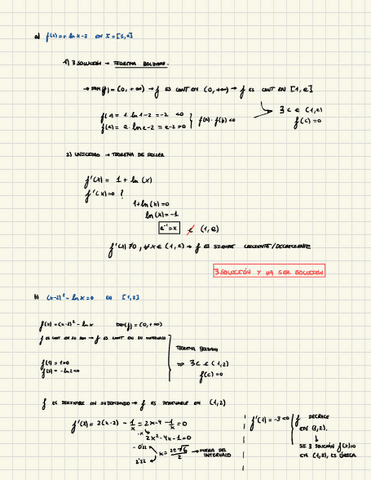 a) f(x) = x ln x - 2 en x = [1, e]
1) ∃ solución → Teorema Bolzano.
→ Dom(f) = (0, +∞) → f es cont en (0, +∞) → f es cont en [1, e]
f(1) = 1 · ln 1 - 2 = -2 < 0
f(e) = e · ln e - 2 = e - 2 > 0
f(a) · f(b) < 0
∃ c ∈ (1, e)
f(c) = 0
2) Unicidad → Teorema de Rolle
f'(x) = 1 + ln (x)
f'(x) = 0 ?
1 + ln(x) = 0
ln(x) = -1
e⁻¹ = x ∉ (1, e)
f'(x) ≠ 0, ∀ x ∈ (1, e) → f es siempre creciente/decreciente
∃ solución y va ser solución
b) (x-2)² - ln x = 0 en [1, 2]
f(x) = (x-2)² - ln x Dom(f) = (0, +∞)
f es cont en su dom → f es cont en el intervalo
f(1) = 1 > 0
f(2) = -ln 2 < 0
Teorema Bolzano
⇒ ∃ c ∈ (1, 2)
f(c) = 0
f es derivable en su dominio → f es derivable en (1, 2)
f'(x) = 2(x-2) - 1/x = 2x - 4 - 1/x = 0
2x² - 4x - 1 = 0
x = 2±√6/2
-0'22
2'22
fuera del intervalo
f'(1) = -3 < 0
f decrece
en (1, 2),
se ∃ solución f(x) = 0
en (1, 2), es única.